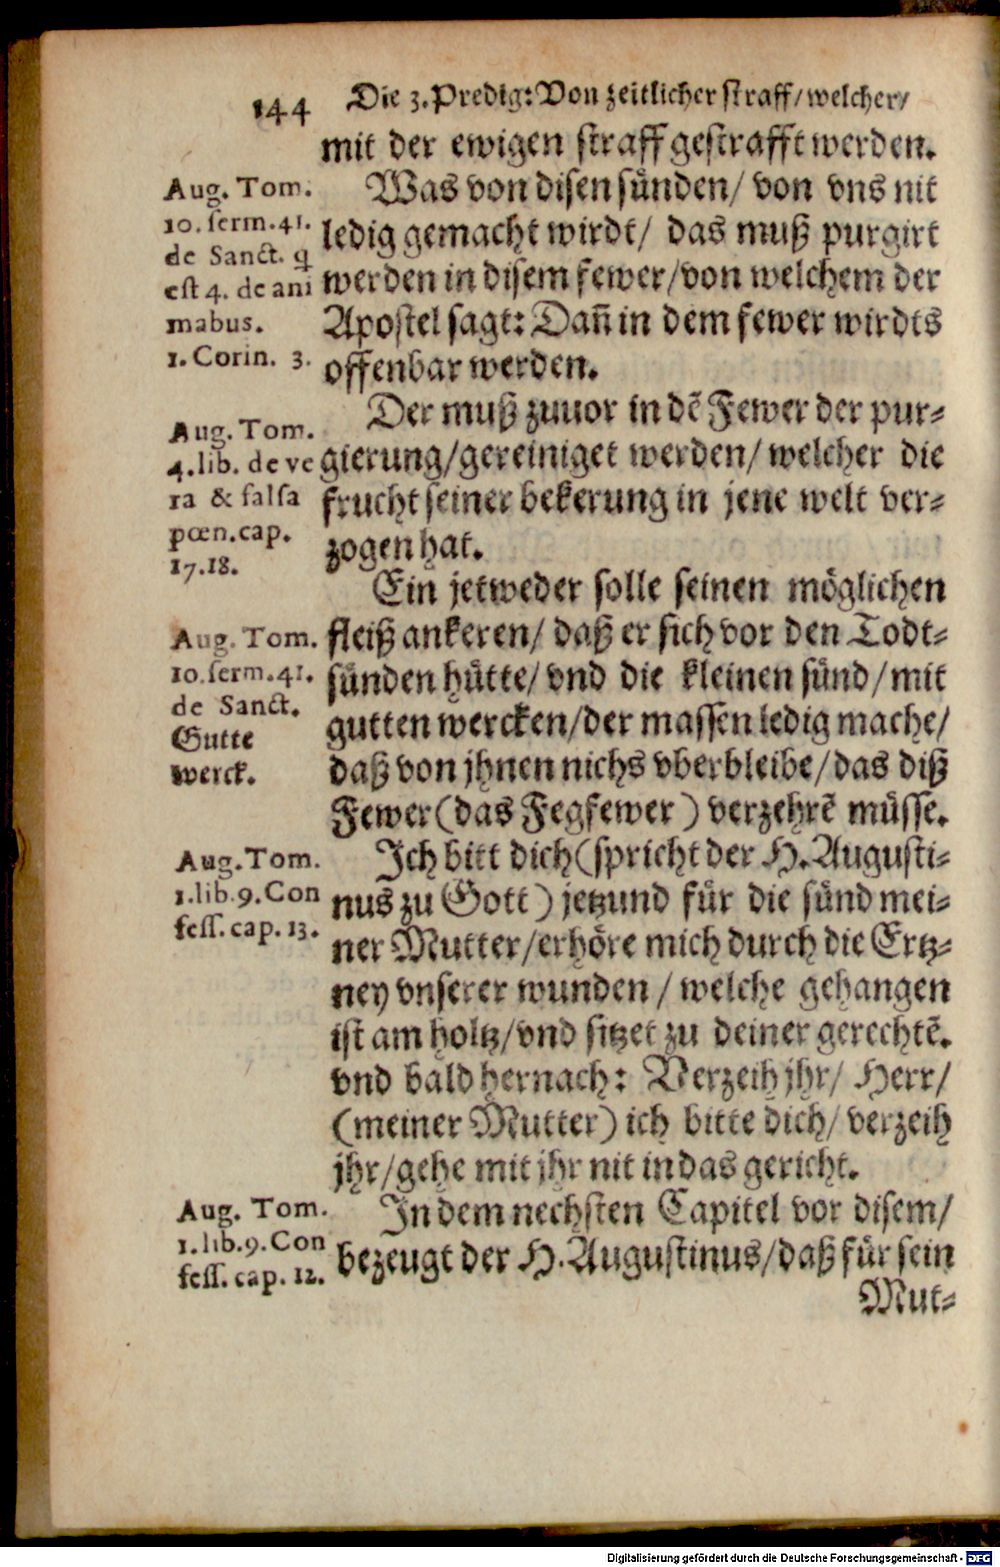 144 Die 3. Predig: Von zeitlicher straff/ welcher/
mit der ewigen straff gestrafft werden.
Was von disen sünden/ von vns nit
ledig gemacht wirdt/ das muß purgirt
werden in disem fewer/ von welchem der
Apostel sagt: Dañ in dem fewer wirdts
offenbar werden.
Aug. Tom.
10. serm. 41.
de Sanct. q
est 4. de ani
mabus.
1. Corin. 3.
Der muß zuuor in dẽ Fewer der pur-
gierung/ gereiniget werden/ welcher die
frucht seiner bekerung in jene welt ver-
zogen hat.
Aug. Tom.
4. lib. de ve
ra & falsa
pœn. cap.
17. 18.
Ein jetweder solle seinen möglichen
fleiß ankeren/ daß er sich vor den Todt-
sünden hütte/ vnd die kleinen sünd/ mit
gutten wercken/ der massen ledig mache/
daß von jhnen nichs vberbleibe/ das diß
Fewer (das Fegfewer) verzehrẽ müsse.
Aug. Tom.
10. serm. 41.
de Sanct.
Gutte
werck.
Ich bitt dich (spricht der H. Augusti-
nus zu Gott) jetzund für die sünd mei-
ner Mutter/ erhöre mich durch die Ertz-
ney vnserer wunden/ welche gehangen
ist am holtz/ vnd sitzet zu deiner gerechtẽ.
vnd bald hernach: Verzeih jhr/ Herr/
(meiner Mutter) ich bitte dich/ verzeih
jhr/ gehe mit jhr nit in das gericht.
Aug. Tom.
1. lib. 9. Con
fess. cap. 13.
In dem nechsten Capitel vor disem/
bezeugt der H. Augustinus/ daß für sein
Mut-
Aug. Tom.
1. lib. 9. Con
fess. cap. 12.
Digitalisierung gefördert durch die Deutsche Forschungsgemeinschaft - DFG